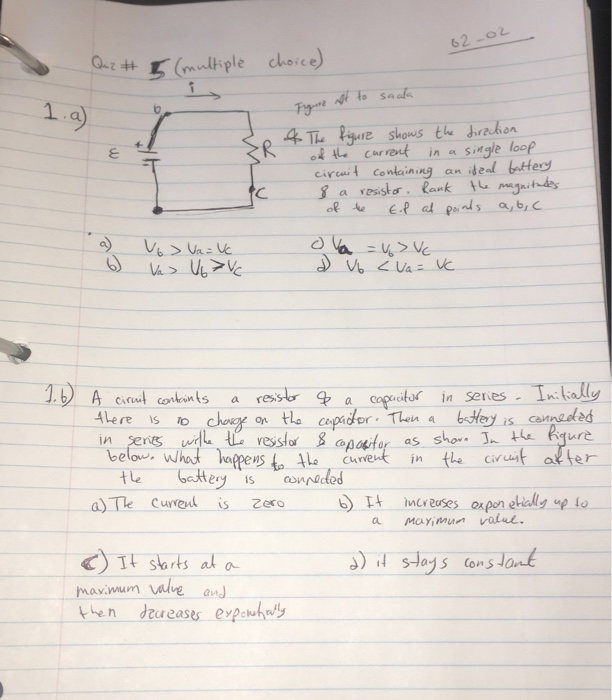 02-02
Quz # 5 (multiple choice)
i
1.a)
b
ε
+
R
C
Figure not to scale
The figure shows the direction
of the current in a single loop
circuit containing an ideal battery
& a resistor. Rank the magnitudes
of the E.P at points a, b, c
a) Vb > Va = Vc
b) Va > Vb > Vc
c) Va = Vb > Vc
d) Vb < Va = Vc
1.b) A circuit containts a resistor & a capacitor in series. Initially
there is no charge on the capacitor. Then a battery is connected
in series withe the resistor & capacitor as show. In the figure
below. What happens to the current in the circuit after
the battery is connected
a) The current is zero
b) It increases exponetially up to
a maximum value.
c) It starts at a
maximum value and
then decreases
d) it stays constant